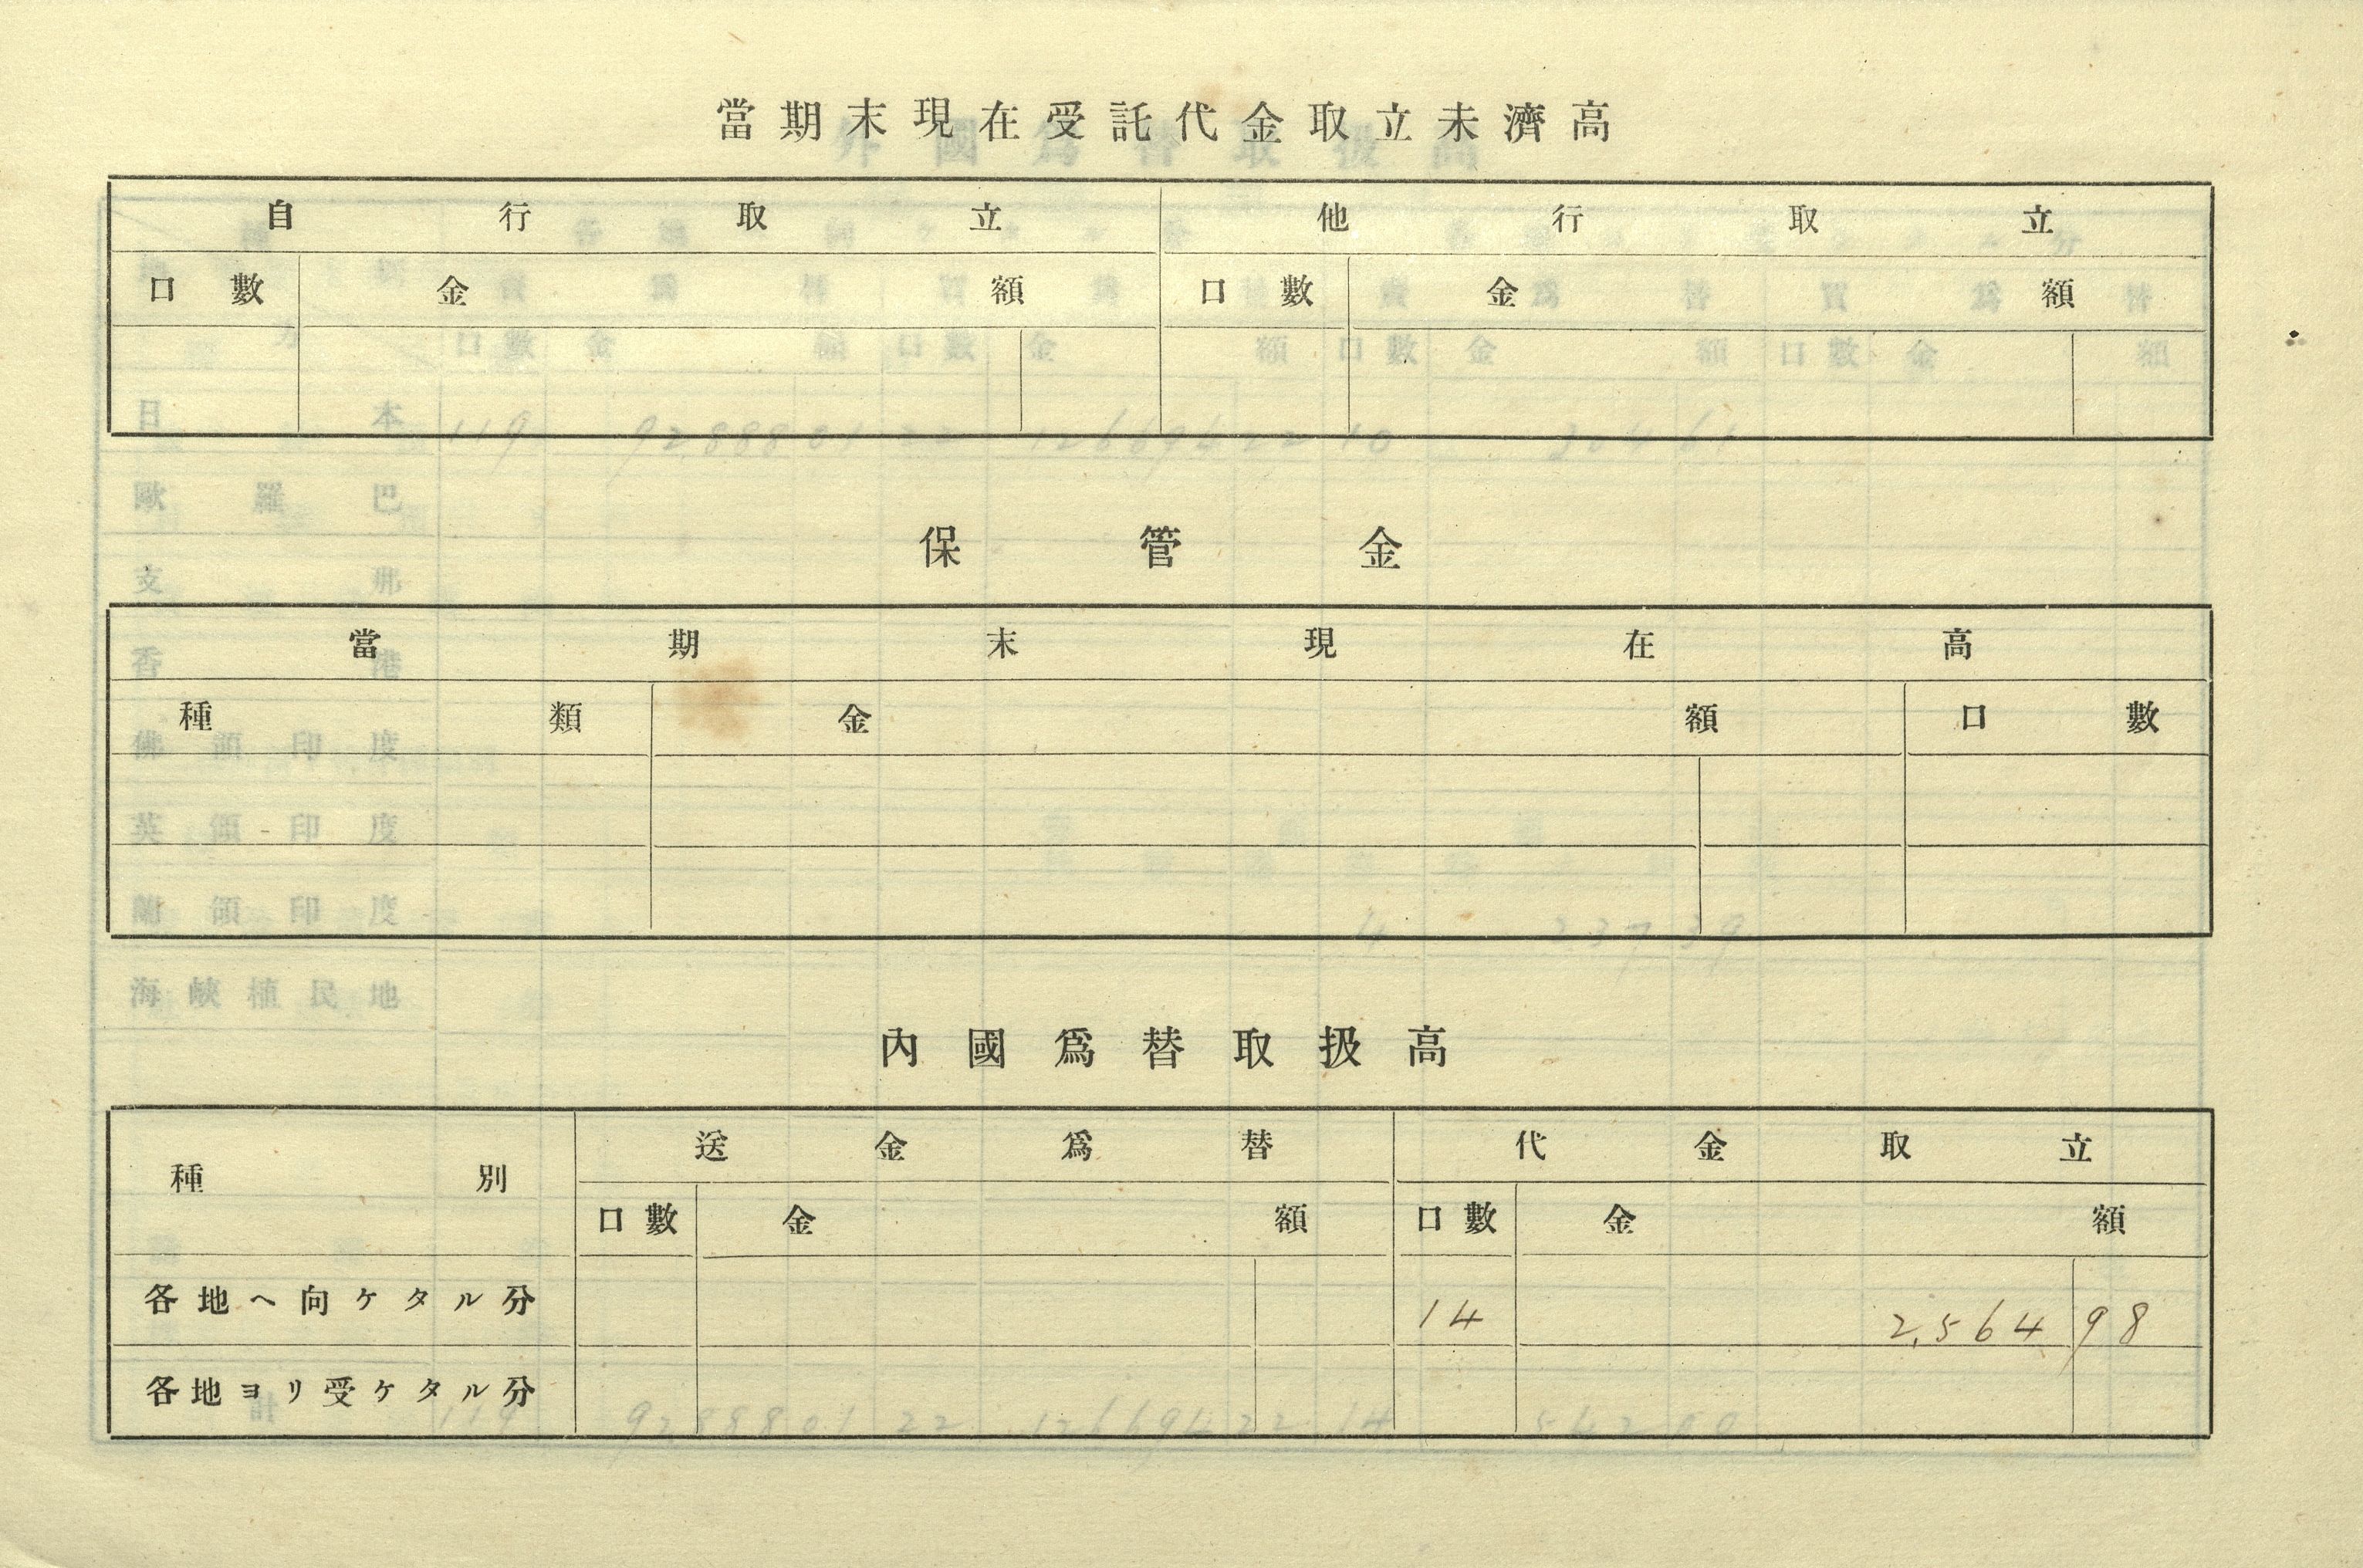 當期末現在受託代金取立未濟高
自行取立 他行取立
口數 金額 口數 金額
保管金
當期末現在高
種類 金額 口數
內國爲替取扱高
種別 送金爲替 代金取立
口數 金額 口數 金額
各地ヘ向ケタル分 14 2,564 98
各地ヨリ受ケタル分